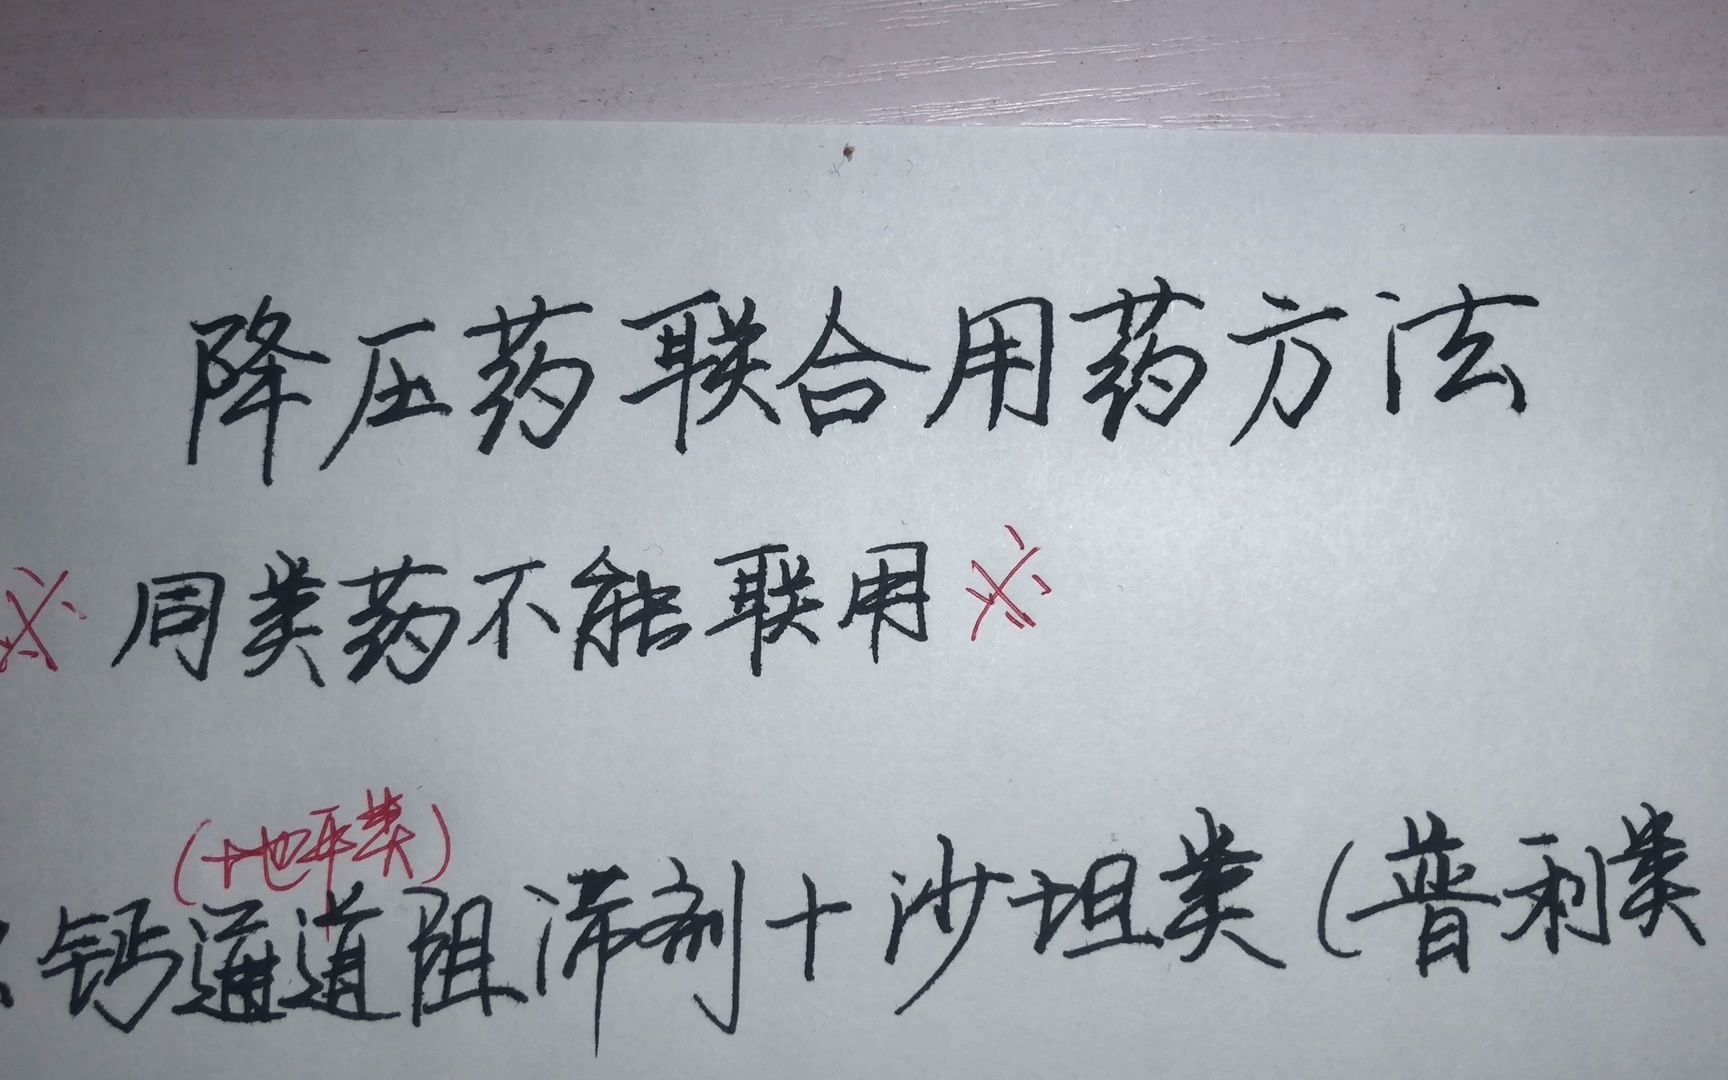 降压药联合用药方法
※ 同类药不能联用 ※
(+地平类)
钙通道阻滞剂+沙坦类(普利类